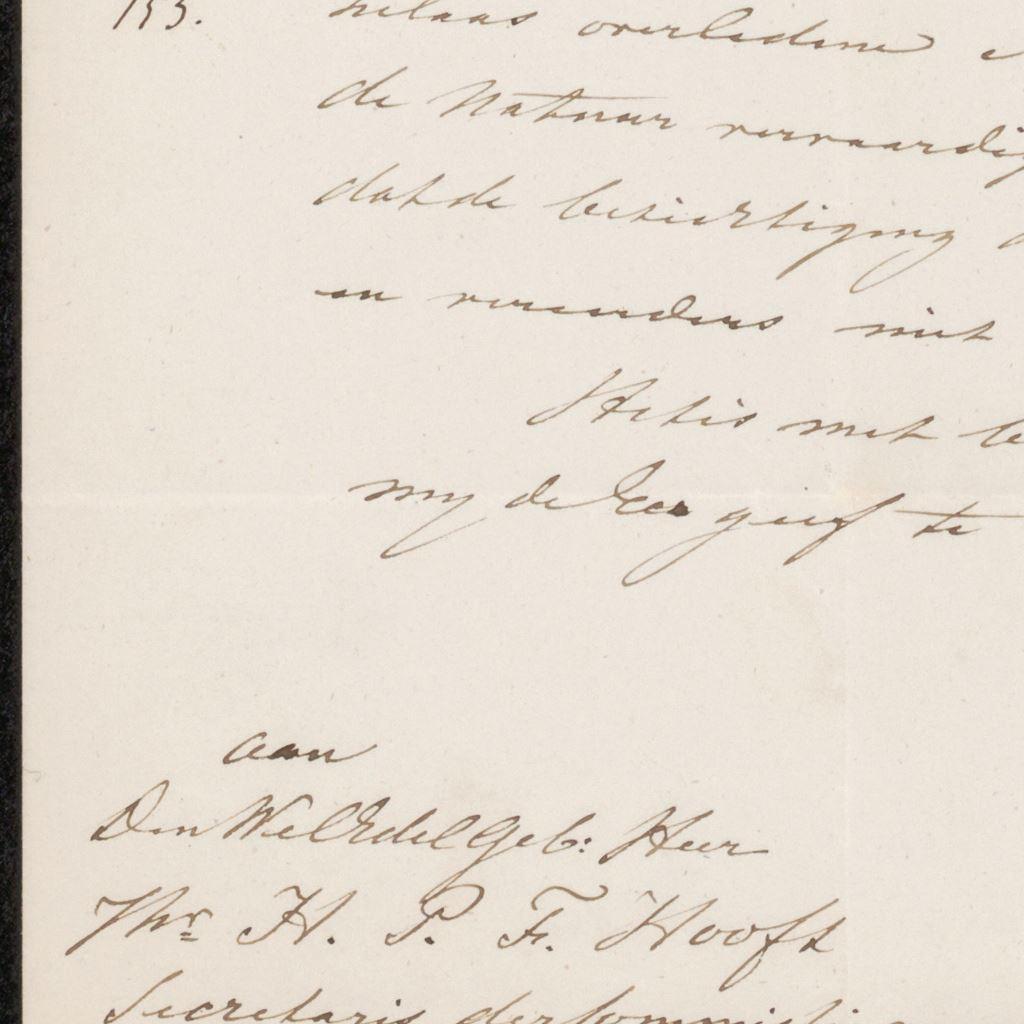 153. helaas overledene
de Natuur vervaardig
dat de bezichtiging
en reeenders niet
Het is met be
my de Eer geef te
aan
Den WelEdelGeb: Heer
Jhr. H. P. F. Hooft
Secretaris der Commissi